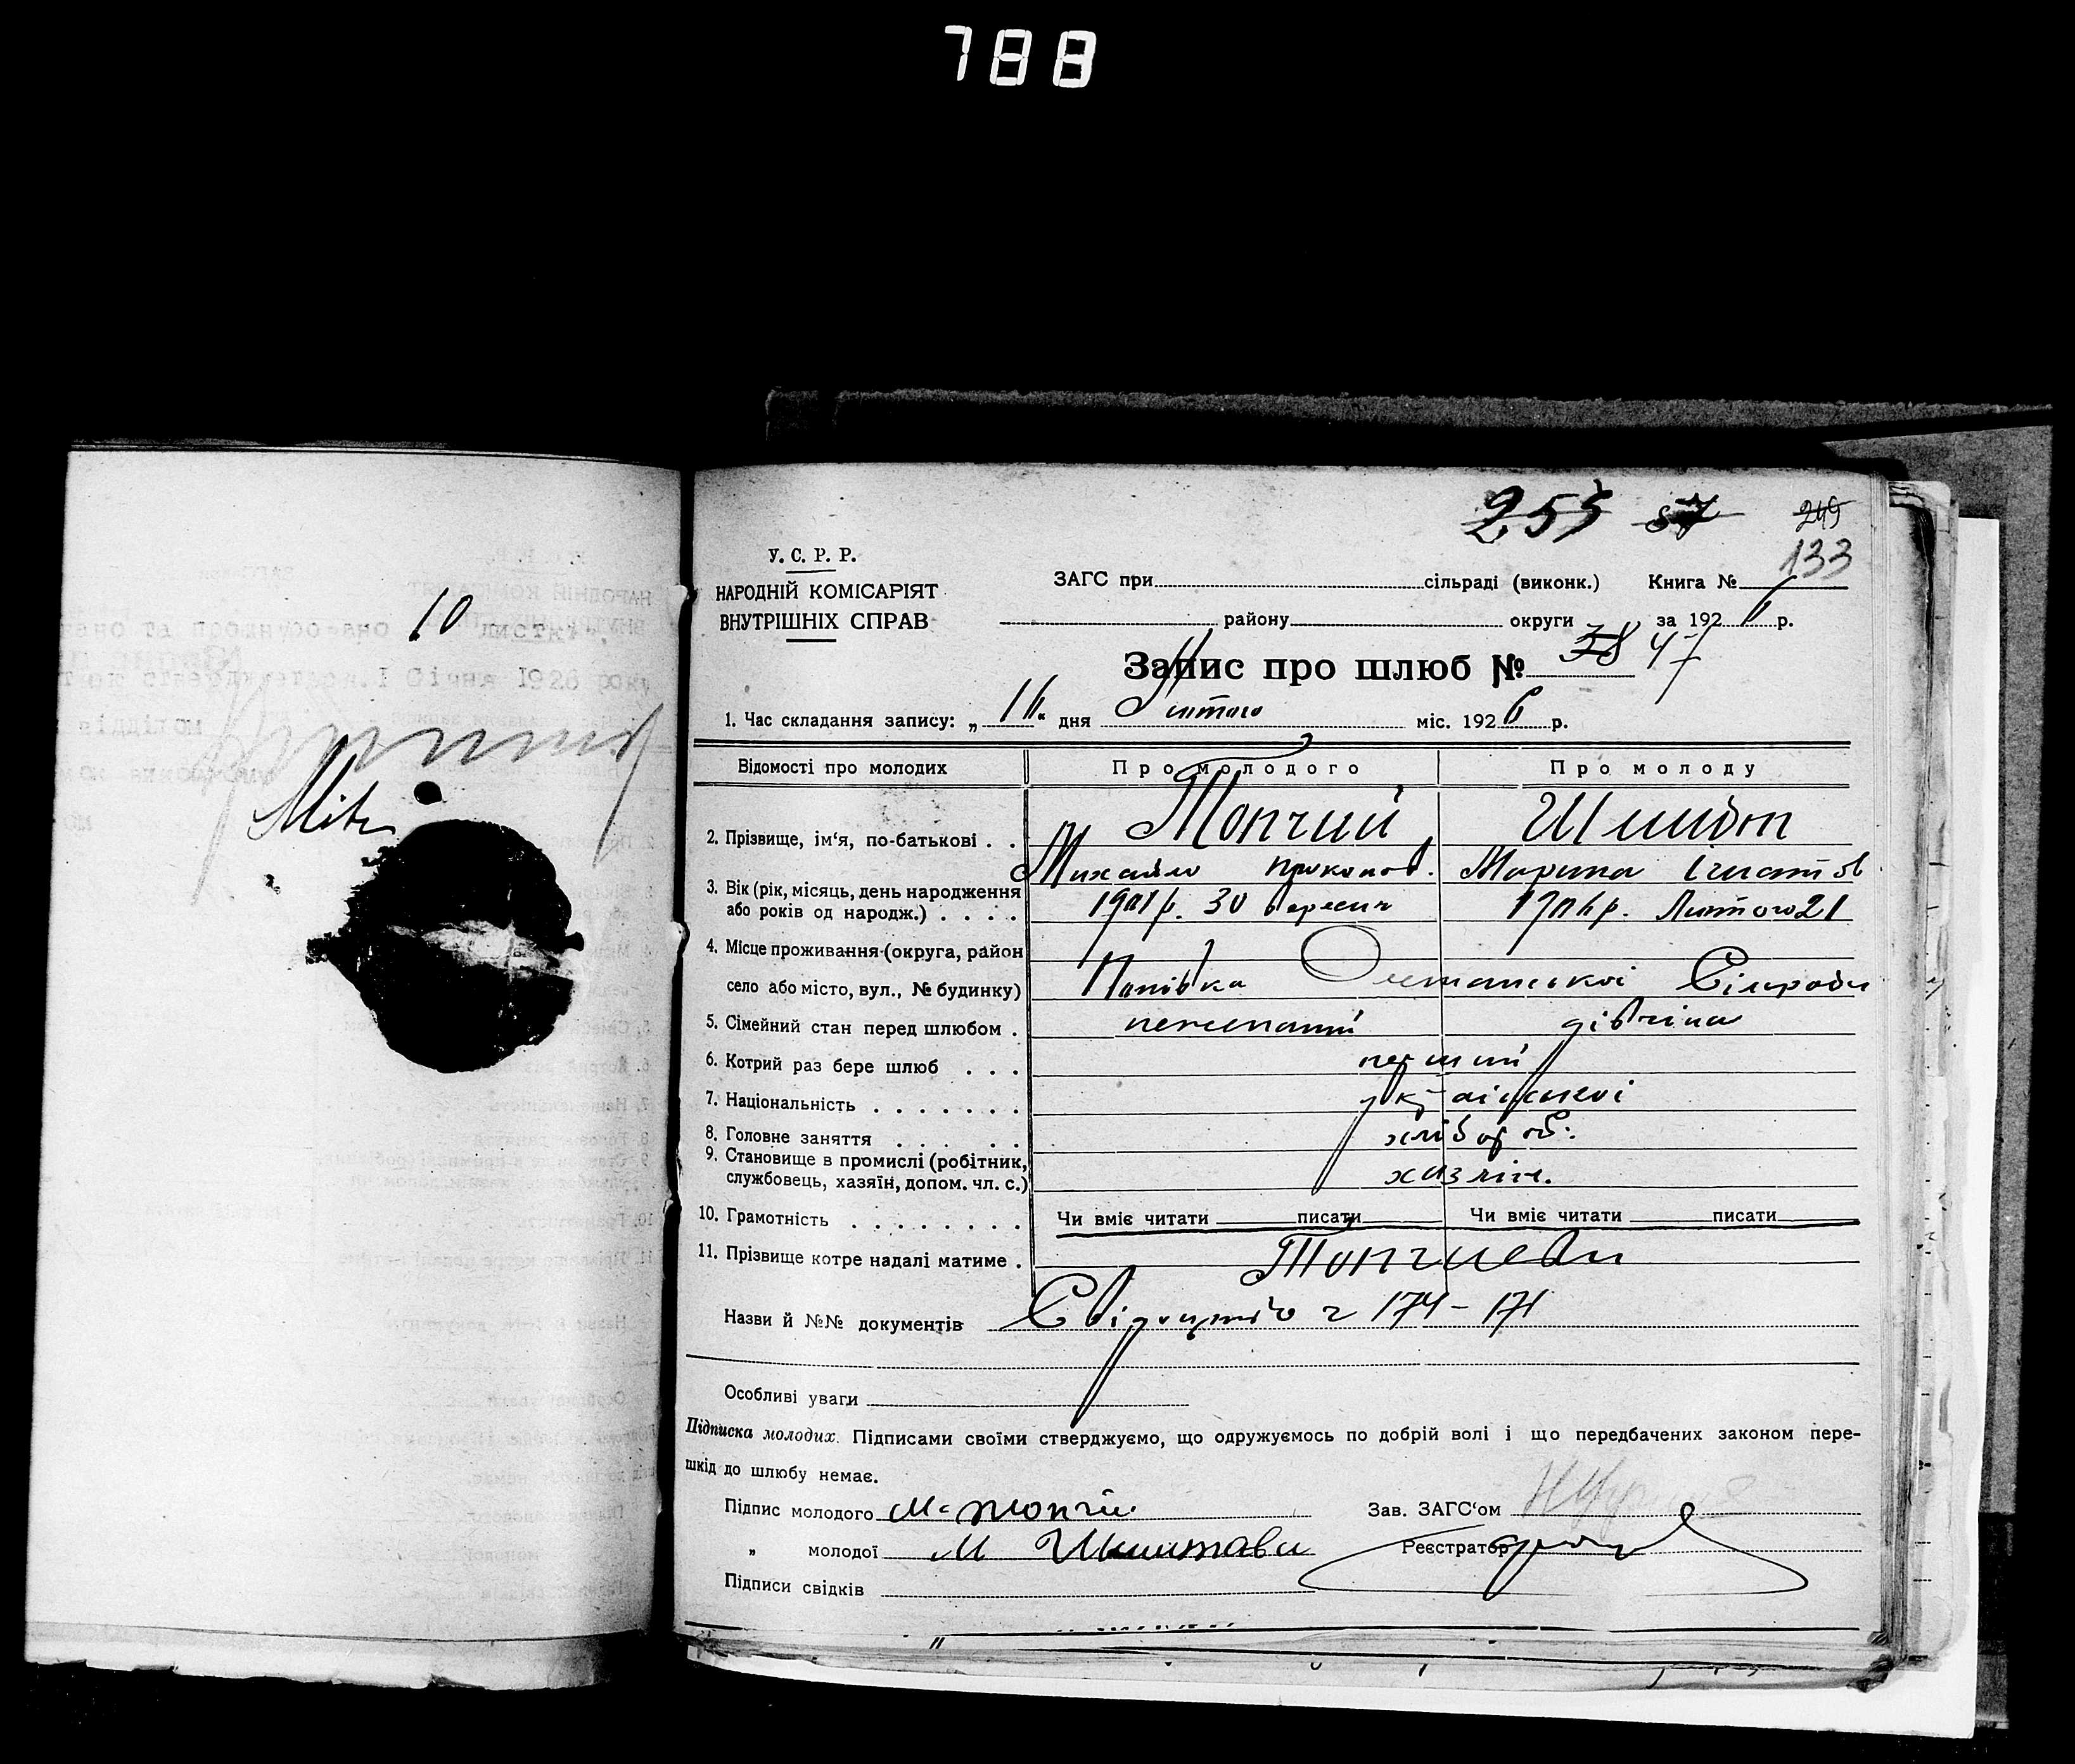 788
10
тано та прошнуровано листків.
том стверджується. 1 Січня 1926 року
відділом
255 87 249
133
У.С.Р.Р.
НАРОДНІЙ КОМІСАРІЯТ
ВНУТРІШНІХ СПРАВ
ЗАГС при сільраді (виконк.) Книга №
району округи за 1926 р.
Запис про шлюб № 38 47
1. Час складання запису: „16“ дня Лютого міс. 1926 р.
Відомості про молодих Про молодого Про молоду
2. Прізвище, ім‘я, по-батькові . . Топчий Шмидт
Михайло Прокопов. Марина Ігнатов
3. Вік (рік, місяць, день народження або років од народж.) . . . . 1901 р. 30 вересня 1906 р. Лютого 21
4. Місце проживання (округа, район
село або місто, вул., № будинку) Попівка Сільради
5. Сімейний стан перед шлюбом . нежонатий дівчина
6. Котрий раз бере шлюб . . . перший
7. Національність . . . . . . . української
8. Головне заняття . . . . . хлібороб.
9. Становище в промислі (робітник,
службовець, хазяїн, допом. чл. с.) хазяїн.
10. Грамотність . . . . . . . . Чи вміє читати писати Чи вміє читати писати
11. Прізвище котре надалі матиме . Топчиеви
Назви й №№ документів Свідоцтво ч 174 - 171
Особливі уваги
Підписка молодих. Підписами своїми стверджуємо, що одружуємось по добрій волі і що передбачених законом пере-
шкід до шлюбу немає.
Підпис молодого М Топчій Зав. ЗАГС‘ом
„ молодої М Реєстратор
Підписи свідків